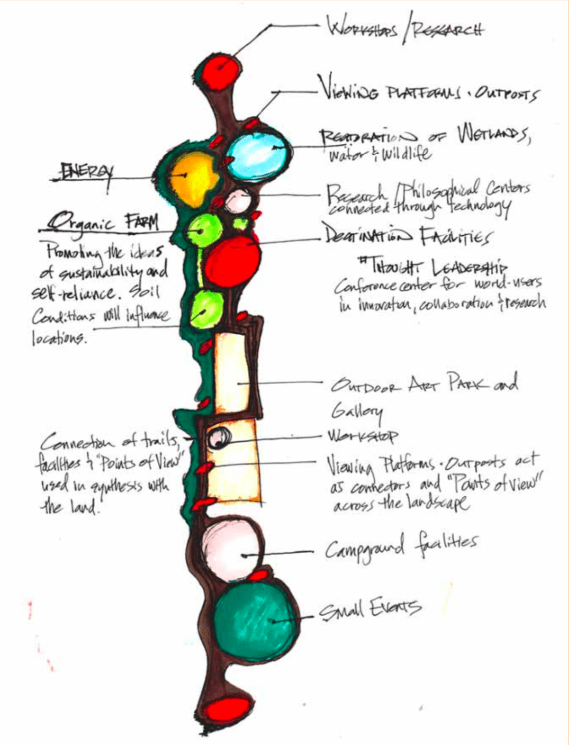 WORKSHOPS / RESEARCH
VIEWING PLATFORMS • OUTPOSTS
RESTORATION OF WETLANDS,
water & wildlife
ENERGY
Research / Philosophical Centers
connected through technology
ORGANIC FARM
Promoting the ideas
of sustainability and
self-reliance. Soil
Conditions will influence
locations.
DESTINATION FACILITIES
#THOUGHT LEADERSHIP
Conference center for world-users
in innovation, collaboration & research
OUTDOOR ART PARK and
Gallery
WORKSHOP
Connection of trails,
facilities & "Points of View"
used in synthesis with
the land.
Viewing Platforms • Outposts act
as connectors and "Points of View"
across the landscape
Campground facilities
SMALL EVENTS